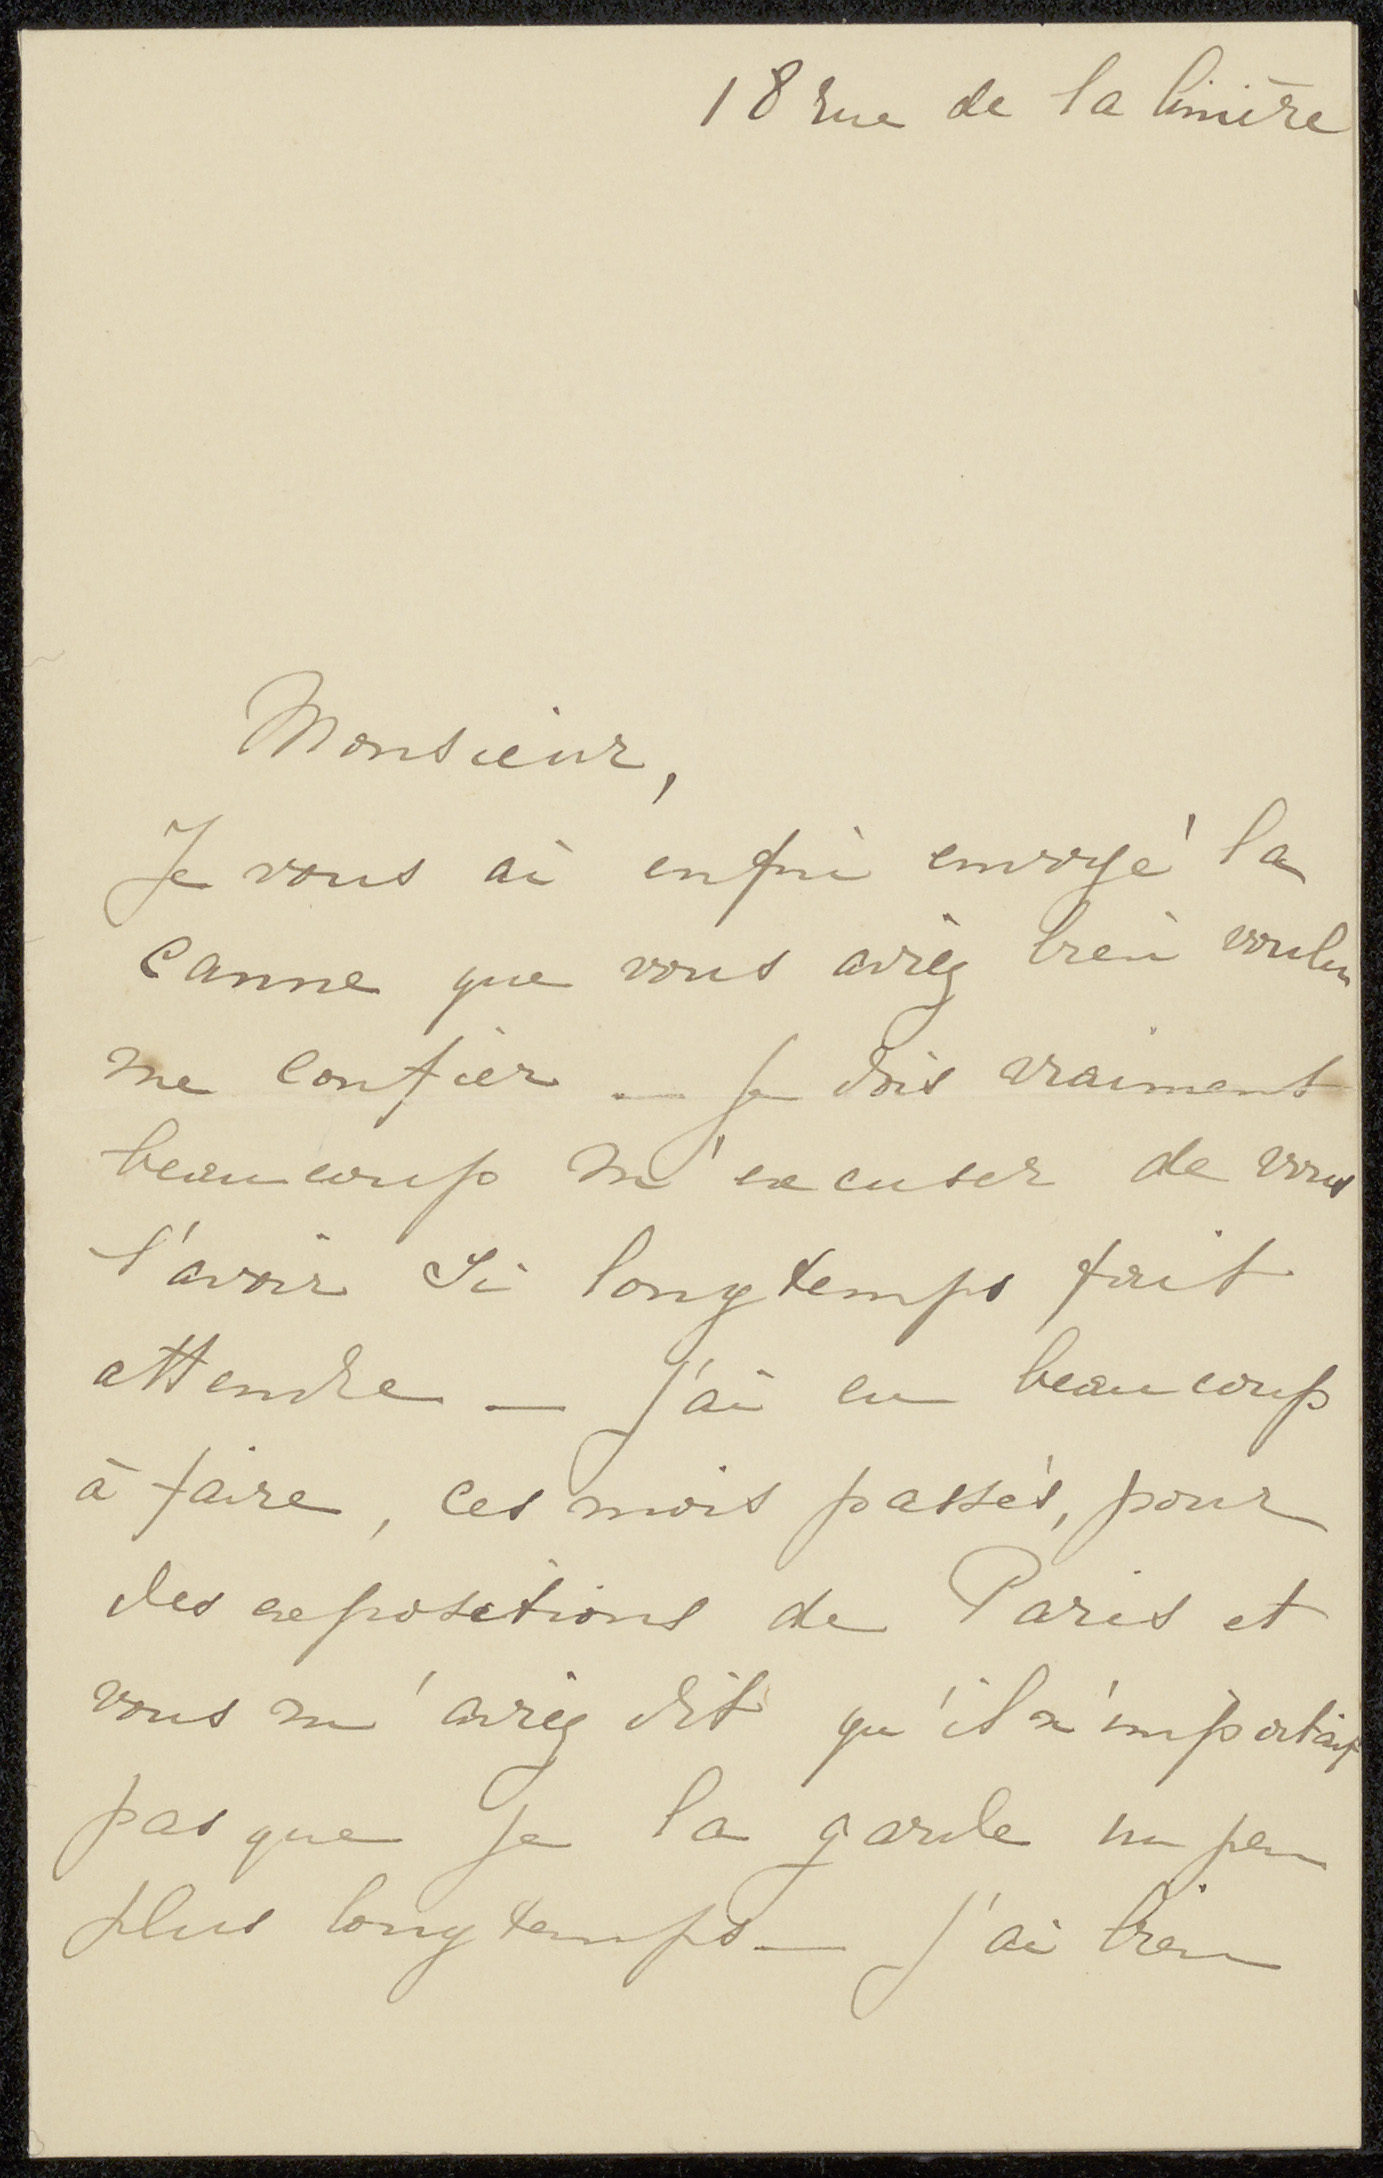 18 rue de la linière
Monsieur,
Je vous ai enfin envoyé la
canne que vous aviez bien voulu
me confier — Je dois vraiment
beaucoup m'excuser de vous
l'avoir si longtemps fait
attendre — J'ai eu beaucoup
à faire, ces mois passés, pour
des expositions de Paris et
vous m'aviez dit qu'il n'importait
pas que je la garde un peu
plus longtemps — J'ai bien